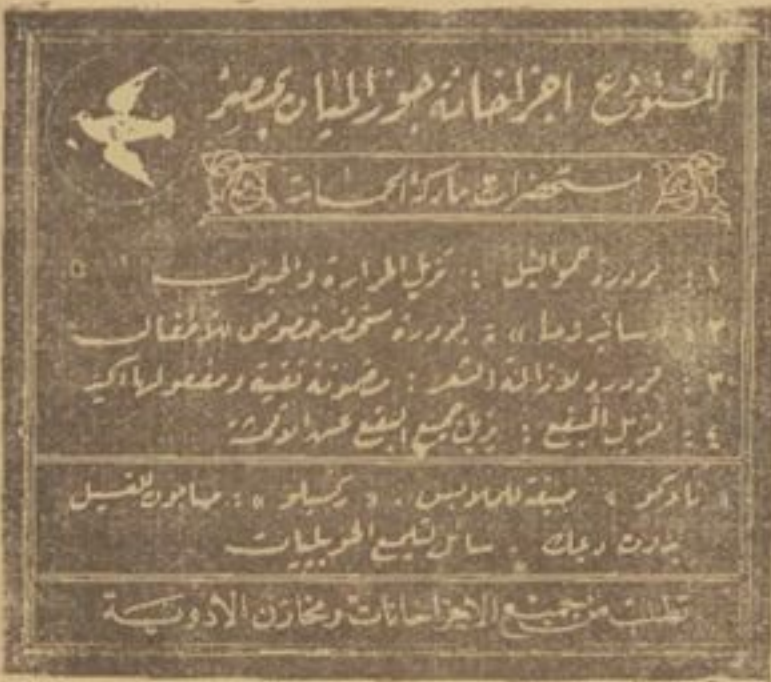 المستودع اجزاخانة جوزالميان بمصر
مستحضرات ماركة الحمامة
١ : بودرة حمو النيل : تزيل الحرارة والحبوب
٢ : » : بودرة مستحضر خصوصى للأطفال
٣ : بودرة لازالة الشعر : مضمونة نقية ومفعولها اكيد
٤ : مزيل البقع : يزيل جميع البقع عن الاقمشة
« نادكو » صبغة للملابس . « » : صابون للغسيل
بدون دعك . سائل لتلميع الموبيليات
تطلب من جميع الاجزاخانات ومخازن الادوية